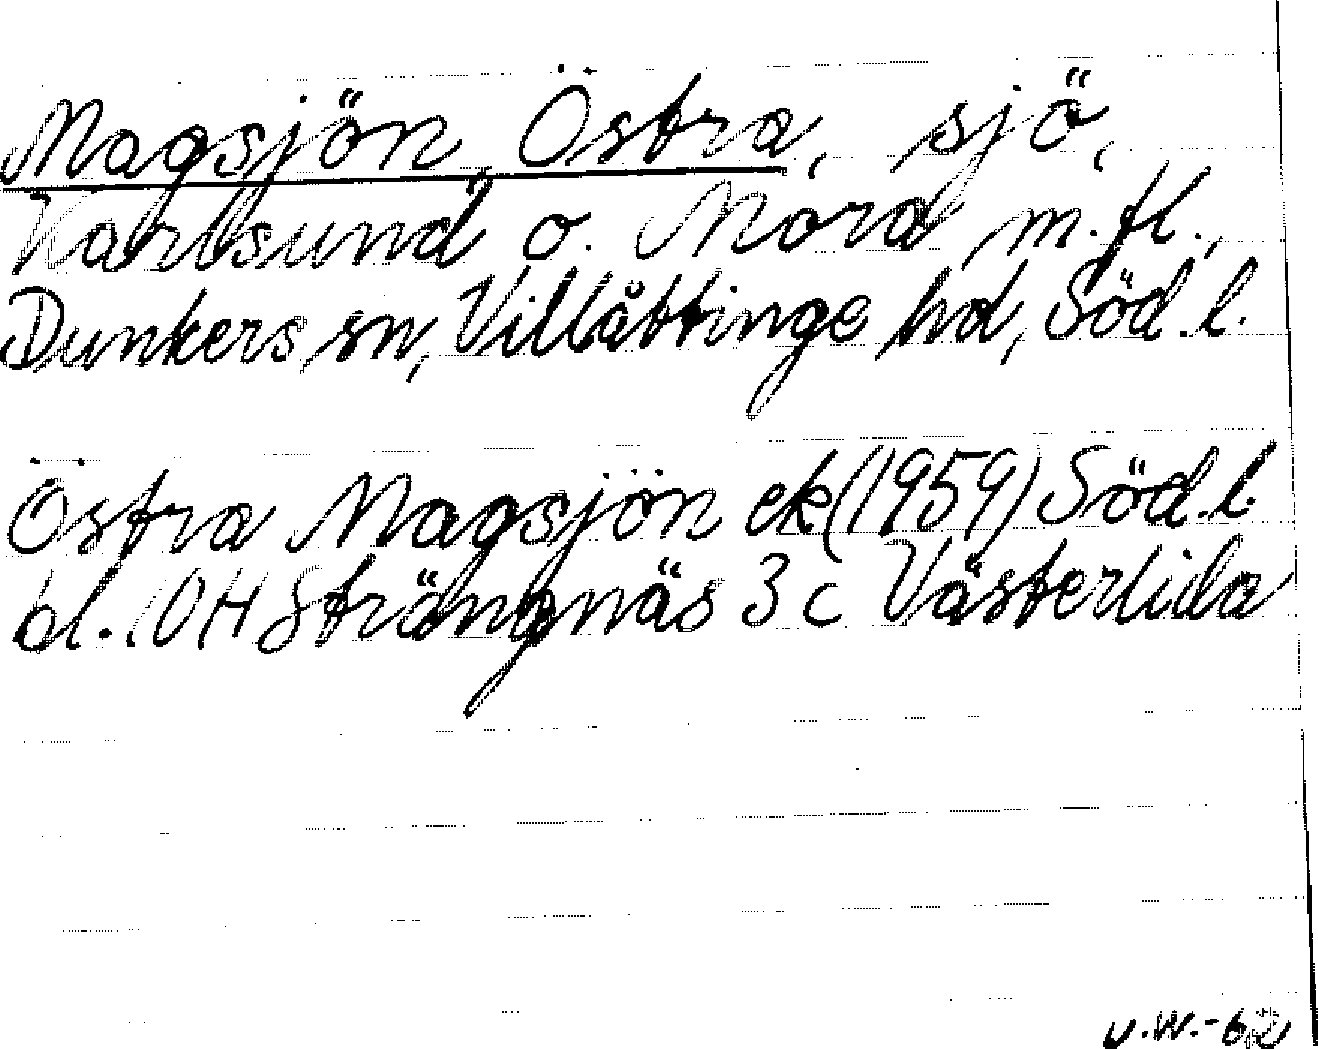 Magsjön, Östra, sjö,
Karlsund o. Nord m.fl.,
Dunkers sn, Villåttinge hd, Söd.l.
Östra Magsjön ek (1959) Söd.l.
bl. 10H Strängnäs 3c Västerlida
v.W.-62